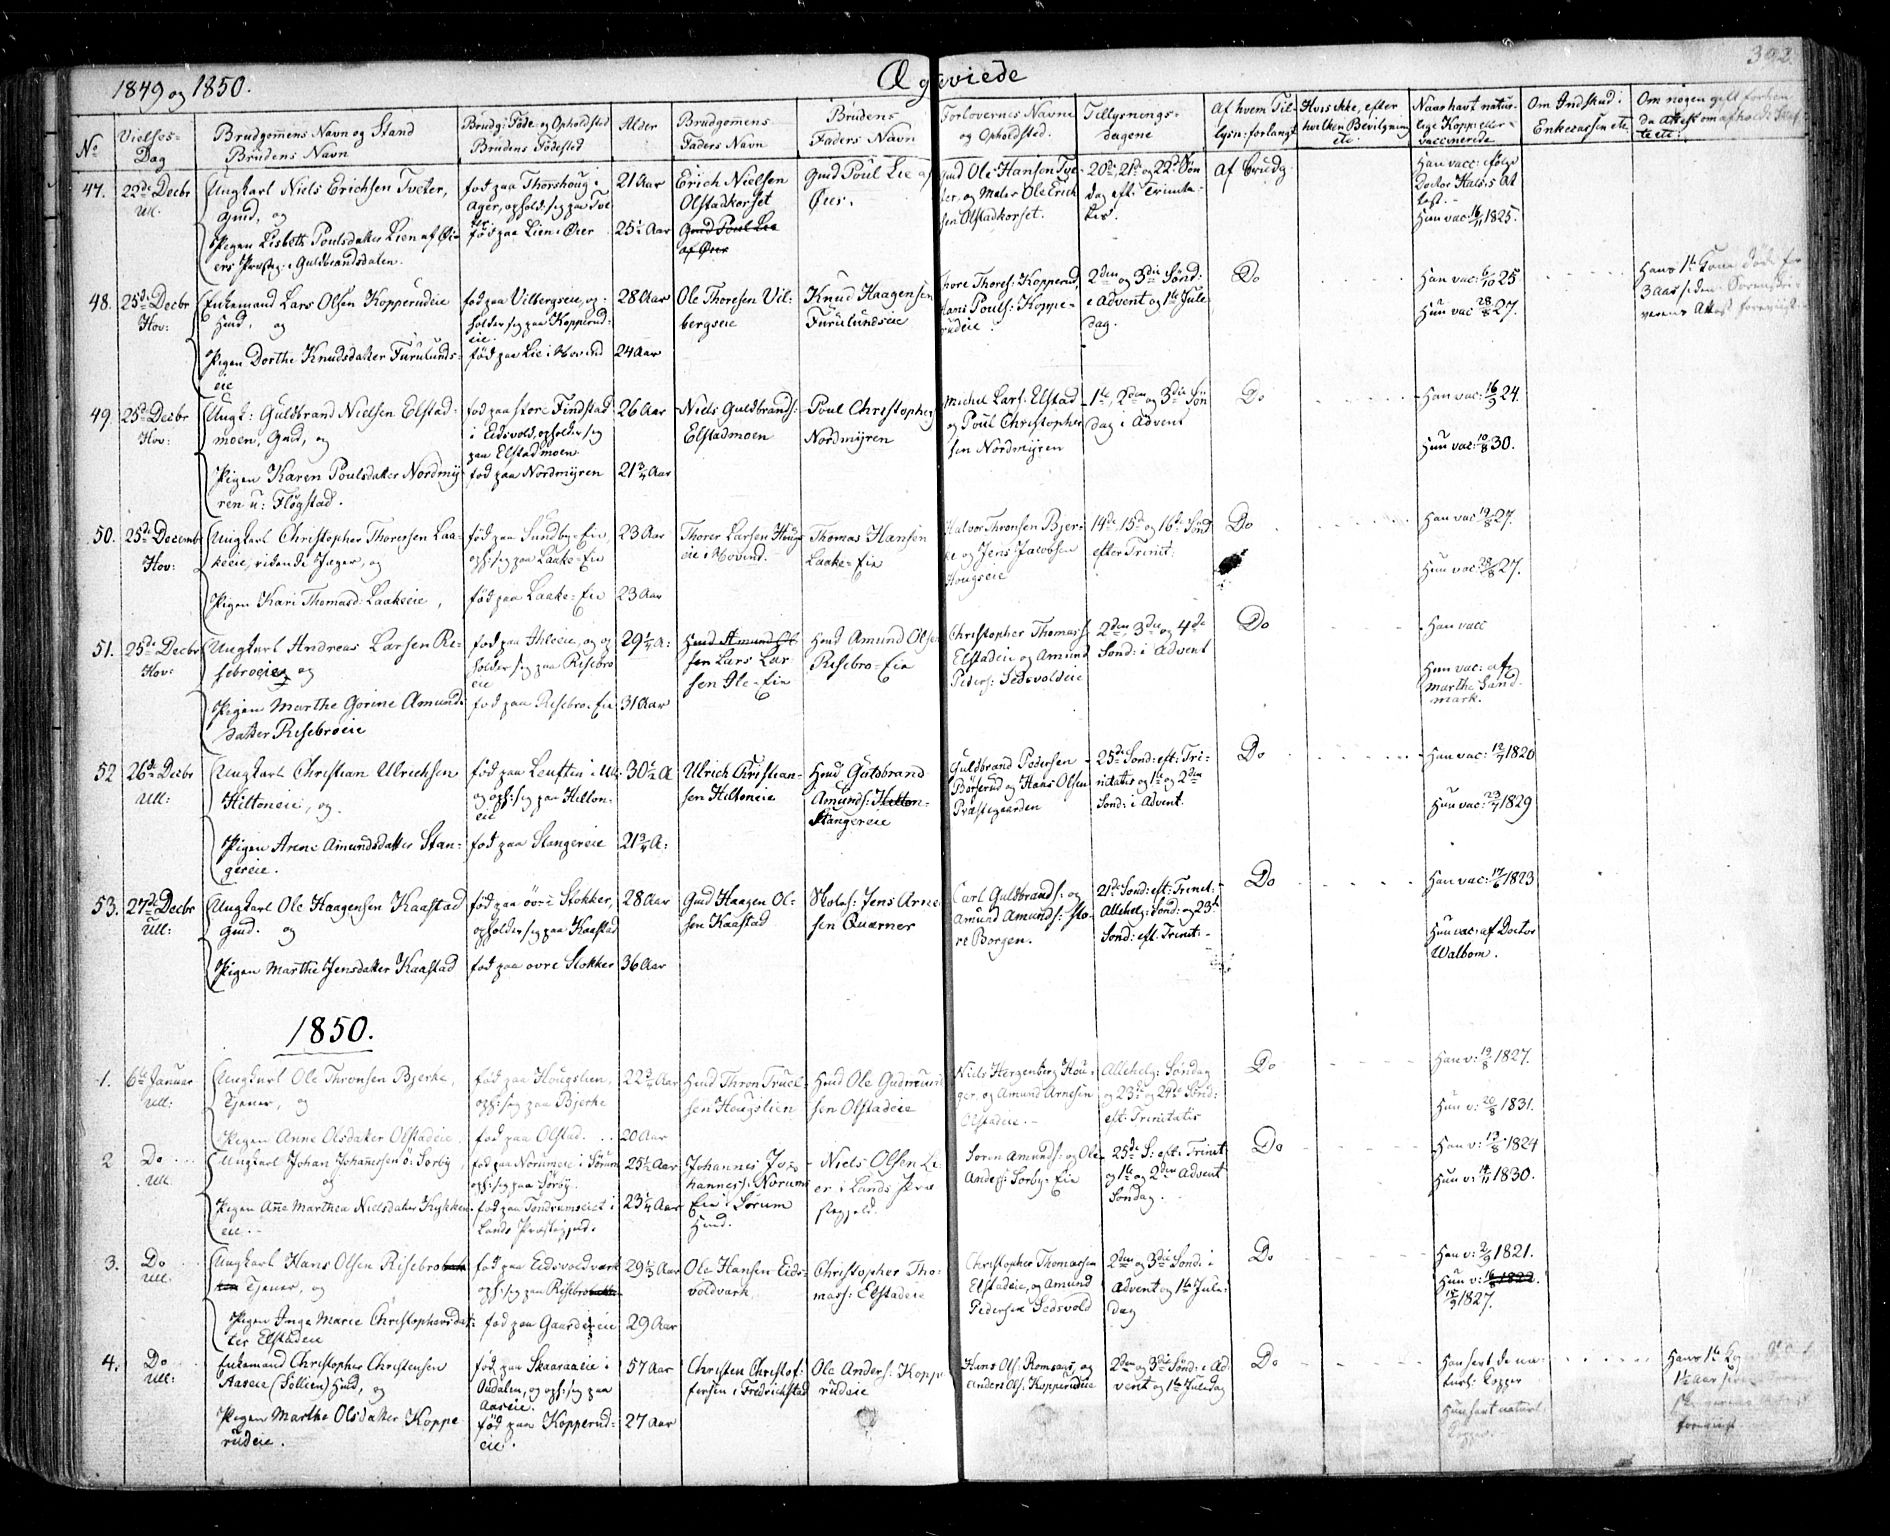 1849 og 1850.
Ægteviede
392.
No
Vielses-
Dag
Brudgomens Navn og Stand
Brudens Navn
Brudg: Føde- og Opholdsted
Brudens Fødested
Alder
Brudgomens
Faders Navn
Brudens
Faders Navn
Forlovernes Navne
og Opholdsted.
Tillysnings-
dagene
Af hvem Til-
lysn: forlangt
Hvis ikke, efter
hvilken Bevilgning
etc.
Naar havt natur-
lige Kopper eller
vaccinerede
Om Indskud i
Enkecassen etc.
47.
22de Decbr
Ull.
Ungkarl Niels Erichsen Tveter,
Gmd, og
Pigen Lisbeth Poulsdatter Lien af Øi-
ers Præsteg: i Guldbrandsdalen.
fød paa Thorshoug i
Ager, ophold: sig paa Tve
ter
fød paa Lien i Øier
21 Aar
25½ Aar
Erich Nielsen
Olstadkorset
Gmd Poul Lie
af Øier
Gmd Poul Lie af
Øier.
Gmd Ole Hansen Tve-
ter, og Maler Ole Erich
sen Olstadkorset.
20de, 21de og 22de Søn
dag eft: Trinita-
tis.
Af Brudg.
Han vacc: ifølge
Doctor Hals's At
test.
Hun vac: 16/11 1825.
48.
25de Decbr
Hov:
Enkemand Lars Olsen Kopperudeie
Hmd, og
Pigen Dorthe Knudsdatter Furulunds-
eie
fød paa Vilbergseie, op-
holder sig paa Kopperud-
eie.
fød paa Lie i Hovind
28 Aar
24 Aar
Ole Thoresen Vil-
bergseie
Knud Haagensen
Furulundseie
Thore Thores: Kopperud,
Hans Pouls: Koppe-
rudeie
2den og 3die Sønd:
i Advent og 1ste Jule
dag.
Do
Han vac: 6/10 25
Hun vac 28/8 27.
Hans 1ste Kone døde for
3 Aar siden
49.
25de Decbr
Hov:
Ungk: Guldbrand Nielsen Elstad-
moen, Gmd, og
Pigen Karen Poulsdatter Nordmÿ-
ren u: Fløgstad.
fød paa store Findstad
i Eidsvold, opholder sig
paa Elstadmoen
fød paa Nordmÿren
26 Aar
21¾ Aar
Niels Guldbrands:
Elstadmoen
Poul Christophers:
Nordmÿren
Michel Lars: Elstad
og Poul Christopher
sen Nordmÿren
1ste, 2den og 3die Søn
dag i Advent
Do
Han vac: 16/9 24.
Hun vac: 10/8 30.
50.
25de Decemb
Hov:
Ungkarl Christopher Thorersen Laa-
keeie, ridende Jæger, og
Pigen Kari Thomasd: Laakeeie,
fød paa Sundby-Eie,
oph: sig paa Laake-Eie
fød paa Laake-Eie
23 Aar
23 Aar
Thorer Larsen Houg
eie i Hovind.
Thomas Hansen
Laake-Eie
Halvor Thronsen Bjer-
ke og Jens Jacobsen
Hougseie
14de, 15de og 16de Sønd
efter Trinit:
Do
Han vac 19/8 27.
Hun vac 28/8 27.
51.
25de Decbr
Hov:
Ungkarl Andreas Larsen Ri-
sebroeie, og
Pigen Marthe Gorine Amunds-
datter Risebroeie
fød paa Ihleeie, og op
holder sig paa Risebro
eie
fød paa Risebro-Eie
29¼ A:
31 Aar
Hmd Amund Ol-
sen Lars Lar
sen Ile-Eie
Hmd Amund Olsen
Risebro-Eie
Christopher Thomass
Elstadeie og Amund
Peders: Sedsvoldeie
2den, 3die og 4de
Sønd: i Advent
Do
Han vacc
Hun vac: af
Marthe Sand-
mark.
52
26de Decbr
Ull:
Ungkarl Christian Ulrichsen
Hiltoneie, og
Pigen Arene Amundsdatter Stan-
gereie.
fød paa Leufsten i Ull:
og oph: sig paa Hilton-
eie
fød paa Stangereie
30½ A
21¾ A:
Ulrich Christian-
sen Hiltoneie
Hmd Gutsbrand
Amunds: Hilton-
Stangereie
Guldbrand Pedersen
Børserud og Hans Olsen
Præstegaarden
25de Sønd: eft: Tri-
nitatis og 1ste og 2den
Sønd: i Advent.
Do
Han vac: 12/7 1820
Hun vac: 23/7 1829
53.
27de Decbr
Ull:
Ungkarl Ole Haagensen Kaastad
Gmd. og
Pigen Marthe Jensdatter Kaastad
fød paa övre Stokker,
opholder sig paa Kaastad
fød paa ovre Stokker
28 Aar
36 Aar
Gmd Haagen Ol-
sen Kaastad
Skolel: Jens Arne
sen Quærner
Carl Guldbrands: og
Amund Amunds: Sto-
re Borgen.
21de Sønd: eft: Trinit:
Allehelg: Sønd: og 23de
Sønd: eft. Trinit:
Do
Han vac: 17/6 1823
Hun vac: af Doctor
Walbom.
1850.
1.
6te Januar
Ull:
Ungkarl Ole Thronsen Bjerke,
Tjener, og
Pigen Anne Olsdatter Olstadeie.
fød paa Hougslien,
oph: sig paa Bjerke
fød paa Olstad.
22¾ Aar
20 Aar
Hmd Thron Truel-
sen Hougslien
Hmd Ole Gudmund
sen Olstadeie
Niels Herzenberg Hou-
ger, og Amund Arnesen
Olstadeie.
Allehelg: Søndag
og 23de og 24de Sønd:
eft: Trinitatis
Do
Han v: 19/8 1827.
Hun v: 20/8 1831.
2
Do
Ull.
Ungkarl Johan Johannesen ö: Sørby,
og
Pigen Ane Marthea Nielsdatter Kjøkken-
eie.
fød paa Norumeie i Sørum
oph: sig paa Sørby.
fød paa Tondrumseiet i
Lands Præstegjeld.
25½ Aar
23¼ Aar
Johannes Jo-
hanness: Norum
Eie i Sørum
Hmd.
Niels Olsen Li-
er i Lands Præ
stegjeld.
Søren Amunds: og Ole
Anders: Sørby-Eie
25de S: eft: Trinit
og 1ste og 2den Advent
Søndag.
Do
Han v: 12/8 1824
Hun v: 14/11 1830.
3.
Do
Ull.
Ungkarl Hans Olsen Risebrobak
ken Tjener, og
Pigen Inge Marie Christophersdat-
ter Elstadeie
fød paa Eidsvoldværk
oph: sig paa Risebrobakke
fød paa Gaardereie
29½ Aar
29 Aar
Ole Hansen Eids-
voldværk
Christopher Tho-
mass: Elstadeie
Christopher Thomassen
Elstadeie, og Amund
Pedersen Sedsvold
2den og 3die Sønd: i
Advent og 1ste Jule-
dag
Do
Han v: 2/9 1821.
Hun v: 16/8 1822.
18/9 1827.
4.
Do
Ull:
Enkemand Christopher Christensen
Aaseie (Sollien) Hmd, og
Pigen Marthe Olsdatter Koppe
rudeie.
fød paa Skaaraaeie i
Oudalen, og oph: sig paa
Aaseie.
fød paa Kopperud-
eie.
57 Aar
27 Aar
Christen Christof-
fersen i Fredrichstad
Ole Anders: Koppe
rudeie
Hans Ols: Romsaas, og
Anders Ols: Kopperudeie
2den og 3die Sønd: i Ad
vent og 1ste Juledag
Do
Han havt de na-
turl: Kopper
Hun havt naturl.
Kopper.
Hans 1ste
1½ Aar siden
forevist